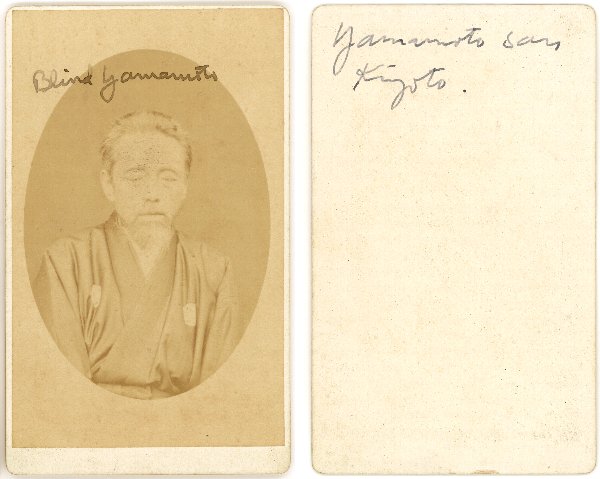 Blind Yamamoto
Yamamoto San
Kiyoto.